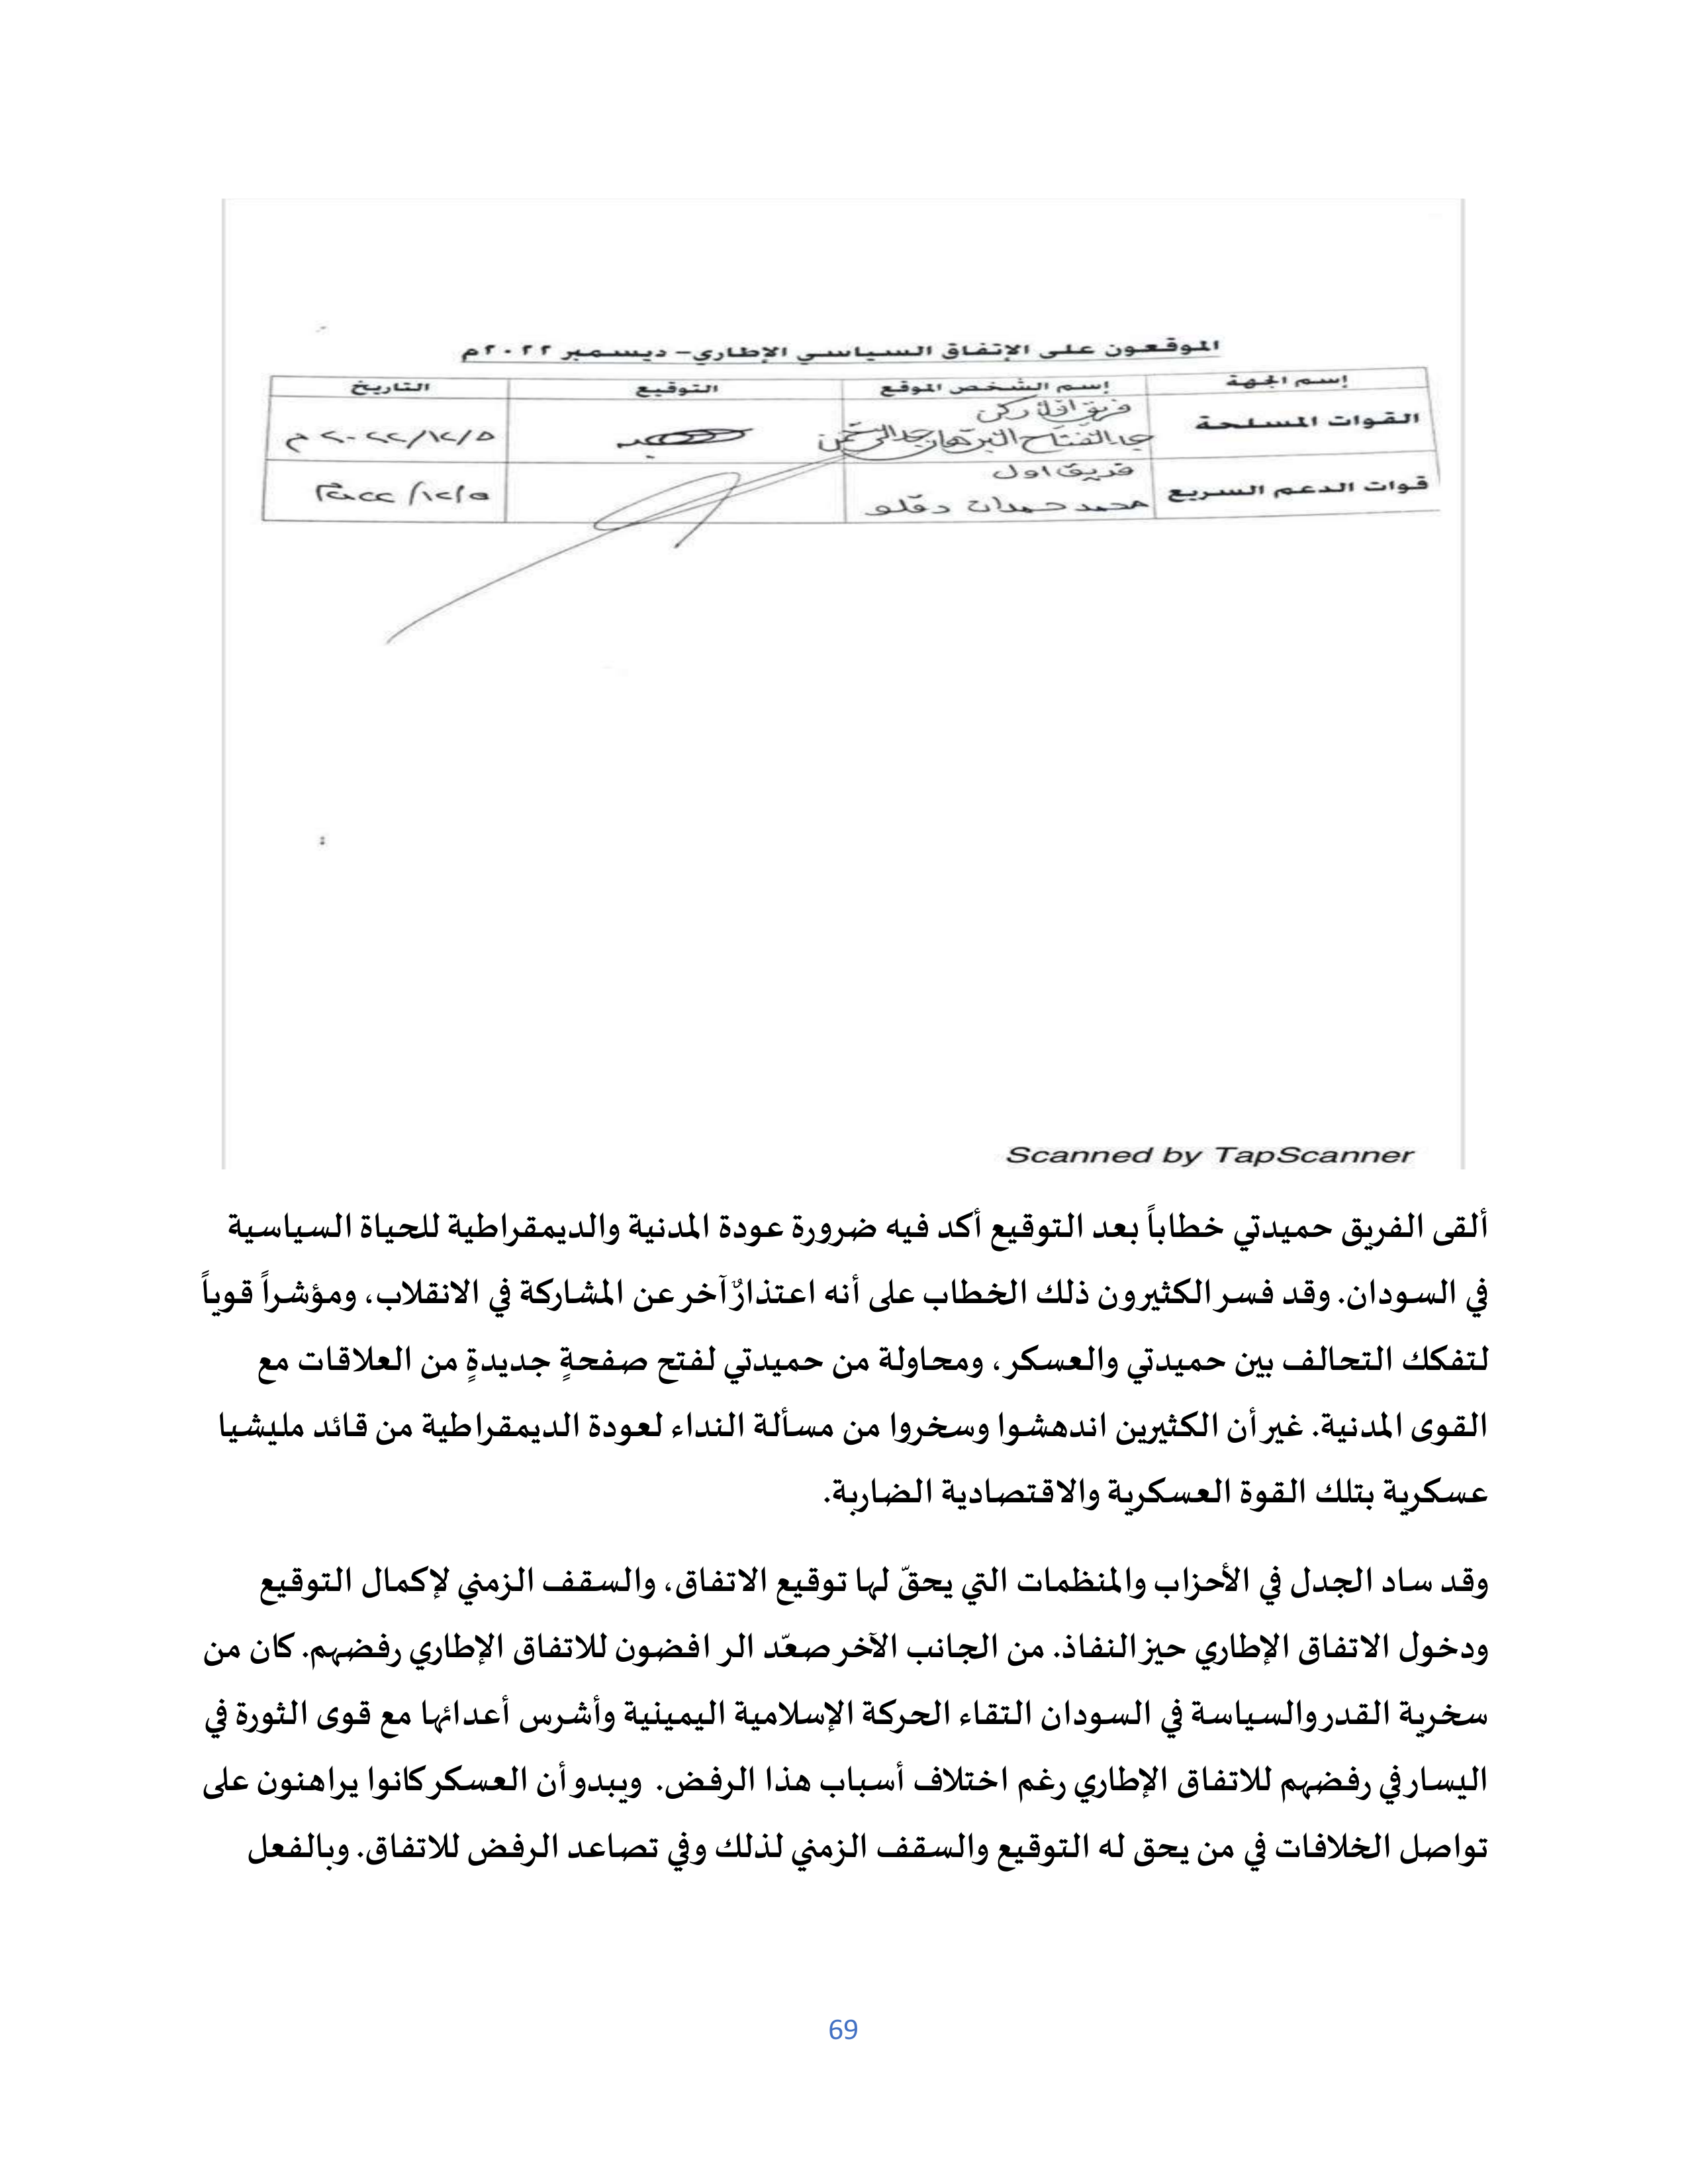 الموقعون على الإتفاق السياسي الإطاري– ديسمبر ٢٠٢٢م
إسم الجهة إسم الشخص الموقع التوقيع التاريخ
القوات المسلحة فريق أول ركن
عبد الفتاح البرهان عبد الرحمن ٢٠٢٢/١٢/٥م
قوات الدعم السريع فريق اول
محمد حمدان دقلو ٢٠٢٢/١٢/٥م
Scanned by TapScanner
ألقى الفريق حميدتي خطاباً بعد التوقيع أكد فيه ضرورة عودة المدنية والديمقراطية للحياة السياسية
في السودان. وقد فسر الكثيرون ذلك الخطاب على أنه اعتذارٌ آخر عن المشاركة في الانقلاب، ومؤشراً قوياً
لتفكك التحالف بين حميدتي والعسكر، ومحاولة من حميدتي لفتح صفحةٍ جديدةٍ من العلاقات مع
القوى المدنية. غير أن الكثيرين اندهشوا وسخروا من مسألة النداء لعودة الديمقراطية من قائد مليشيا
عسكرية بتلك القوة العسكرية والاقتصادية الضاربة.
وقد ساد الجدل في الأحزاب والمنظمات التي يحقّ لها توقيع الاتفاق، والسقف الزمني لإكمال التوقيع
ودخول الاتفاق الإطاري حيز النفاذ. من الجانب الآخر صعّد الرافضون للاتفاق الإطاري رفضهم. كان من
سخرية القدر والسياسة في السودان التقاء الحركة الإسلامية اليمينية وأشرس أعدائها مع قوى الثورة في
اليسار في رفضهم للاتفاق الإطاري رغم اختلاف أسباب هذا الرفض. ويبدو أن العسكر كانوا يراهنون على
تواصل الخلافات في من يحق له التوقيع والسقف الزمني لذلك وفي تصاعد الرفض للاتفاق. وبالفعل
69